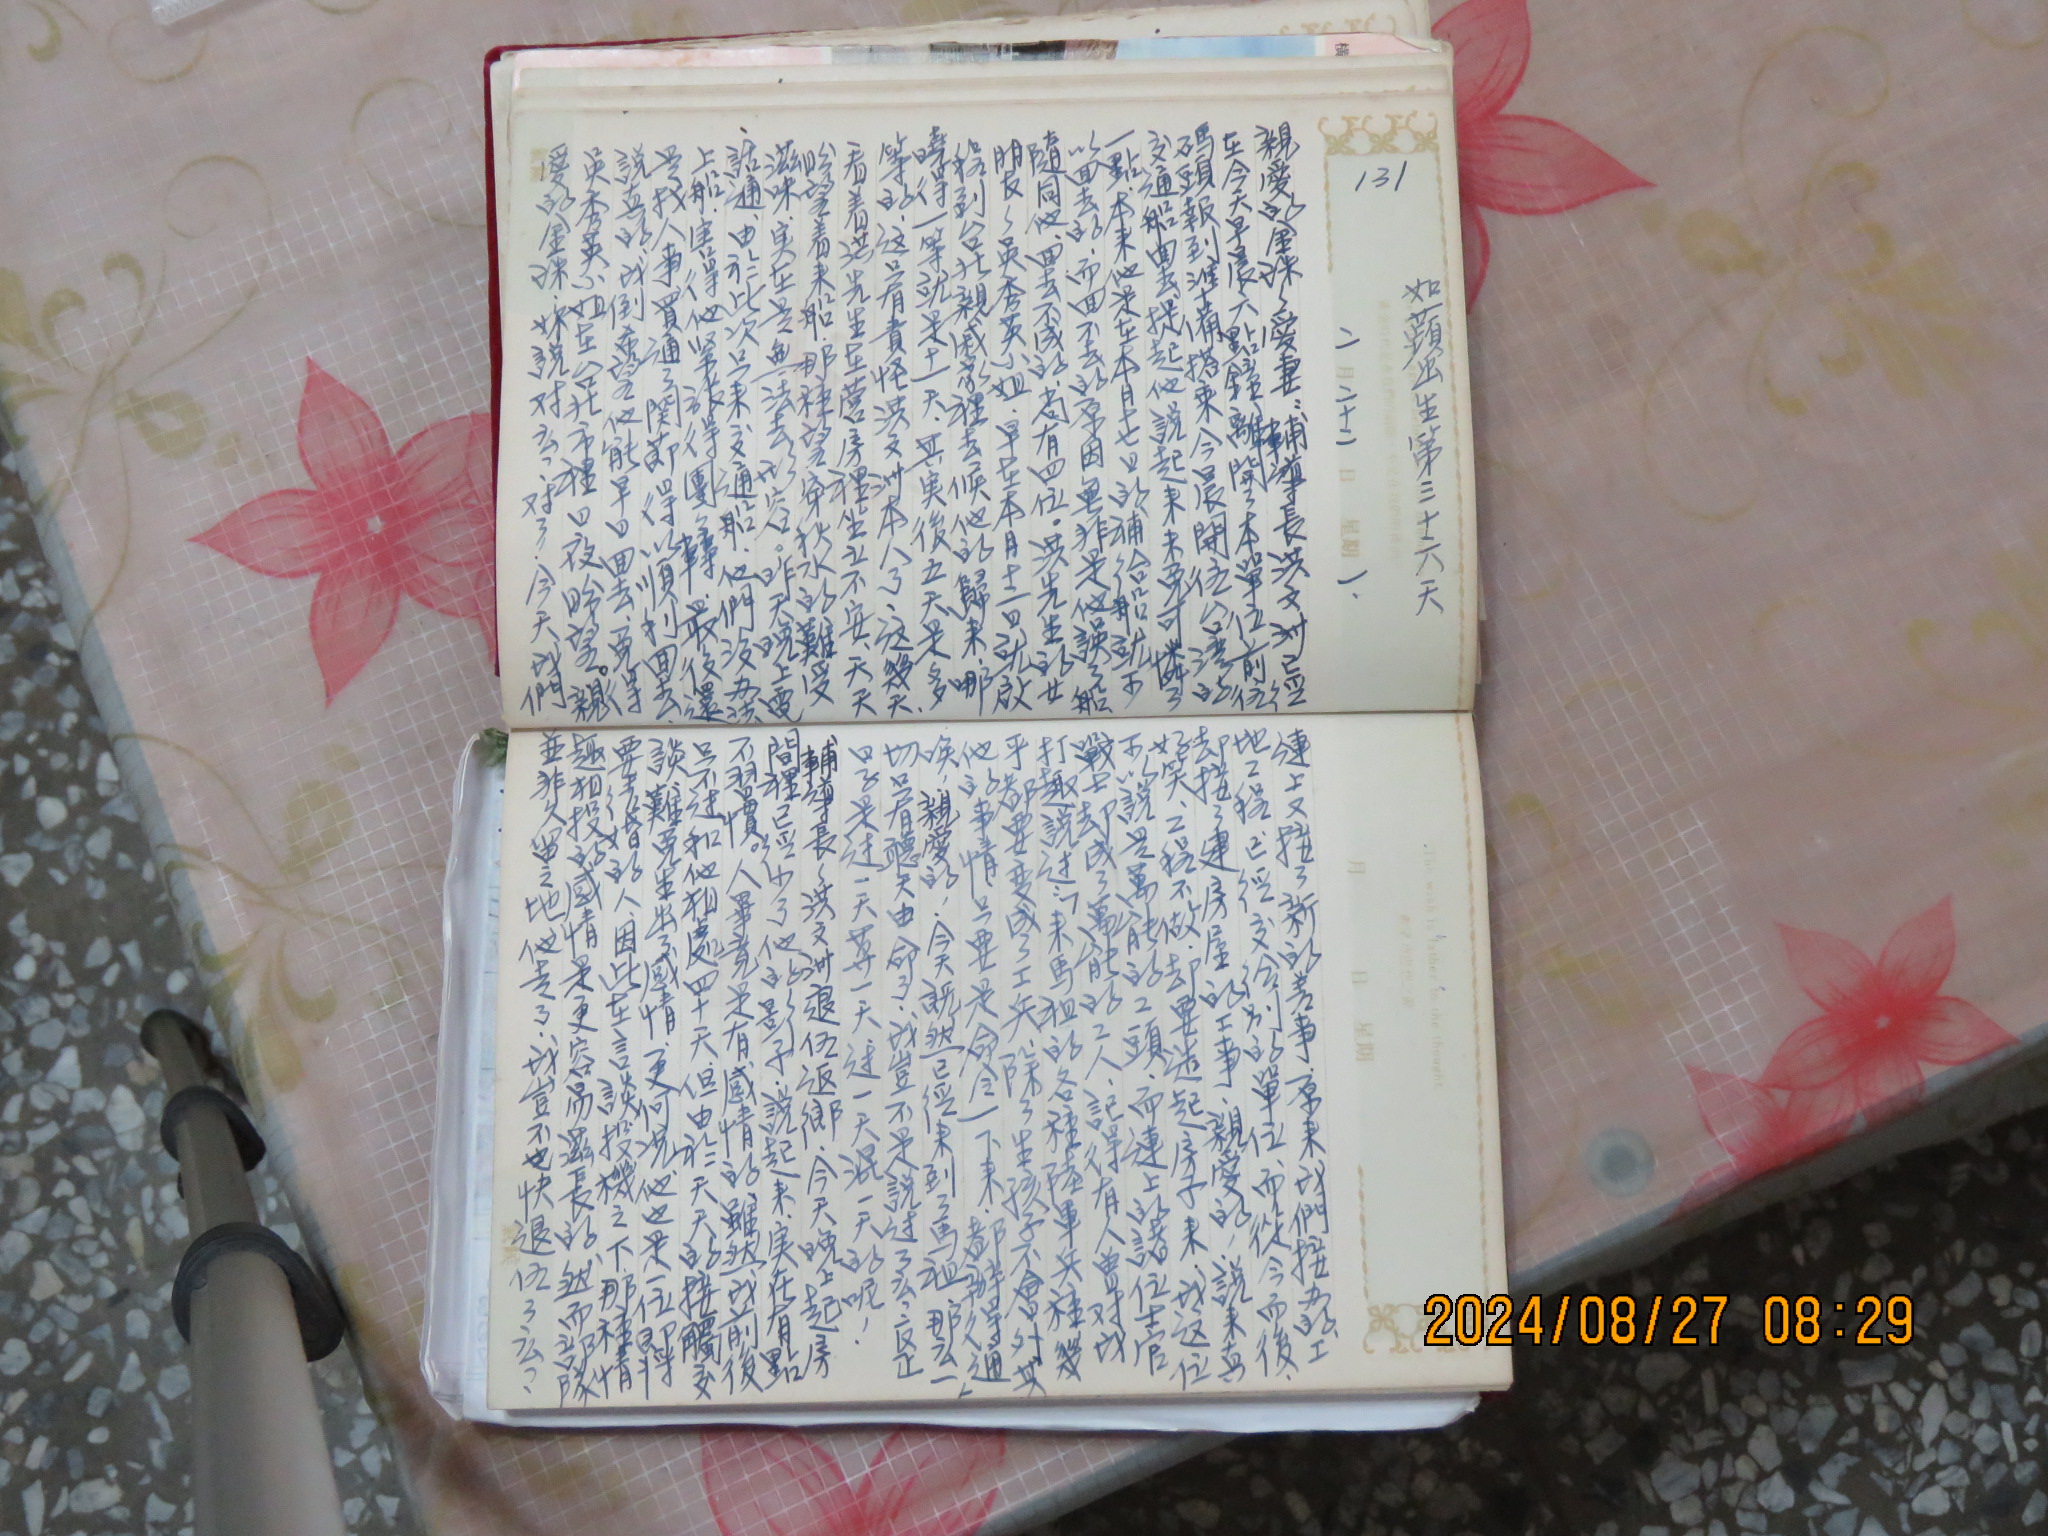 131
如蘋出生第三十六天
二月二十二日 星期一
親愛的金珠、愛妻：輔導長洪文洲已經
在今天早晨六點鐘離開了本單位前往
碼頭報到準備搭乘今晨開往台灣的
交通船回去，提起他說起來未免可憐了
一點，本來他是在本月十七日的補給船就可
以回去的，而回不去的原因無非是他誤了船
隨同他回去不成的，尚有四位。洪先生的女
朋友、吳秀英小姐，早在本月十一日就啟
程到台北親戚家裡去候他的歸來，哪
曉得一等就是十一天，其实後五天是多
等的，这只有責怪洪文洲本人了，这幾天
看着洪先生在營房裡坐立不安，天天
盼望着來船，那種望穿秋水的難受
滋味，实在是無法去形容。昨天晚上電
話通，由於此次只來交通船，他們沒办法
上船，害得他緊張得團團轉，最後還
是找人事買通了関節得以順利回去，
說真的，我倒希望他能早日回去，免得
吳秀英小姐在台北市裡日夜盼望。親
愛的金珠，妳說对么？对了！今天我們
連上又接了新的差事，原來我們接办的工
地工程已經交令別的單位，而從今而後，
却去接了建房屋的工事，親愛的，說來真
好笑，工程不做，却要造起房子來，我这位
不說是萬能的工頭，而連上的諸位士官
戰士却成了萬能的工人，記得有人曾对我
打趣說过：「來馬祖的各種陸軍兵種幾
乎都要变成了工兵，除了生孩子不會外其
他的事情只要是命令一下來，都辦得通
唉！親愛的，今天既然已經來到了馬祖，那么一
切只有聽天由命了，我豈不是說过了么？反正
日子是过一天算一天，过一天混一天的呢！
輔導長、洪文洲退伍返鄉，今天晚上起房
間裡已經少了他的影子，說起來，实在有點
不習慣。人畢竟是有感情的，雖然我前後
只不过和他相處四十天，但由於天天的接觸交
談，難免生出了感情，更何況他也是一位即將
要去結婚的人，因此在言談投機之下，那種情
趣相投的感情是更容易滋長的，然而部隊
並非久留之地，他走了，我豈不也快退伍了么？